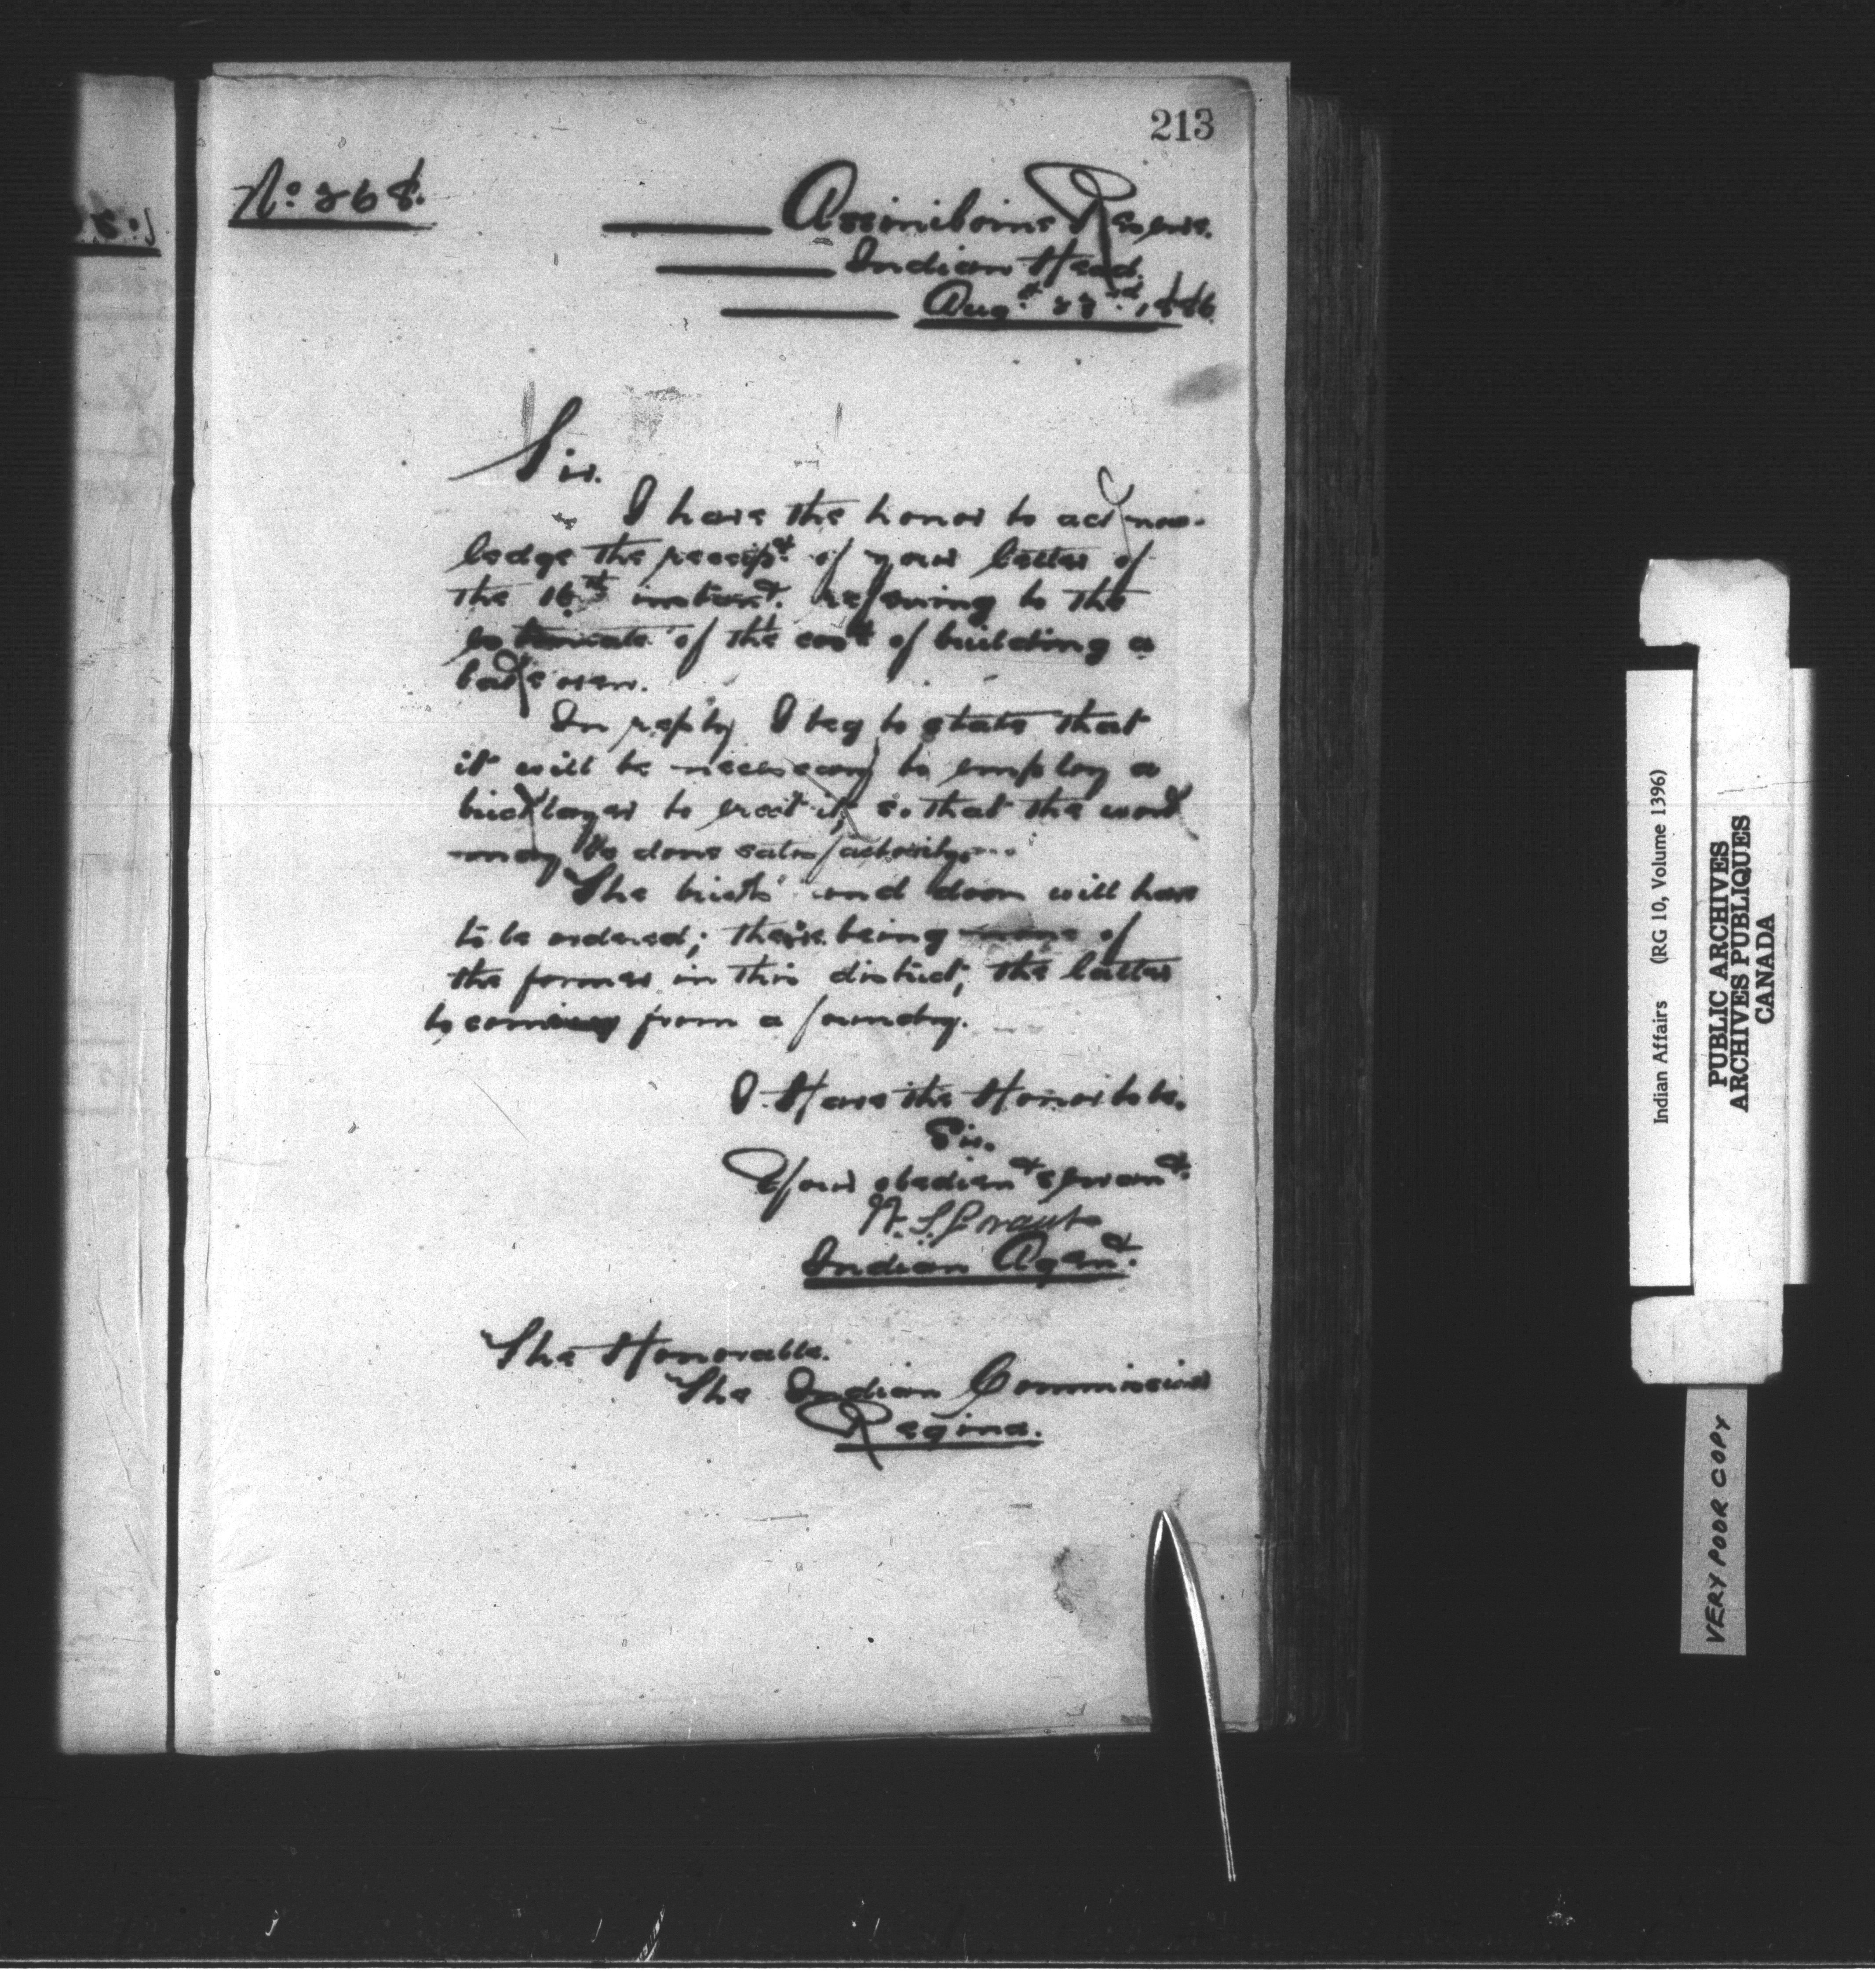 213
No 268.
Assiniboine Reserve.
Indian Head.
Augt 23rd, 1886.
Sir.
I have the honor to acknow-
ledge the receipt of your letter of
the 16th instant. referring to the
estimate of the cost of building a
bake oven.
In reply I beg to state that
it will be necessary to employ a
bricklayer to erect it, so that the work
may be done satisfactorily.
The bricks and doors will have
to be ordered; there being none of
the former in this district, the latter
to coming from a foundry.
I Have the Honor to be.
Sir.
Your obedient servant.
W. S. Grant
Indian Agent.
The Honorable.
The Indian Commissioner
Regina.
Indian Affairs (RG 10, Volume 1396)
PUBLIC ARCHIVES
ARCHIVES PUBLIQUES
CANADA
VERY POOR COPY